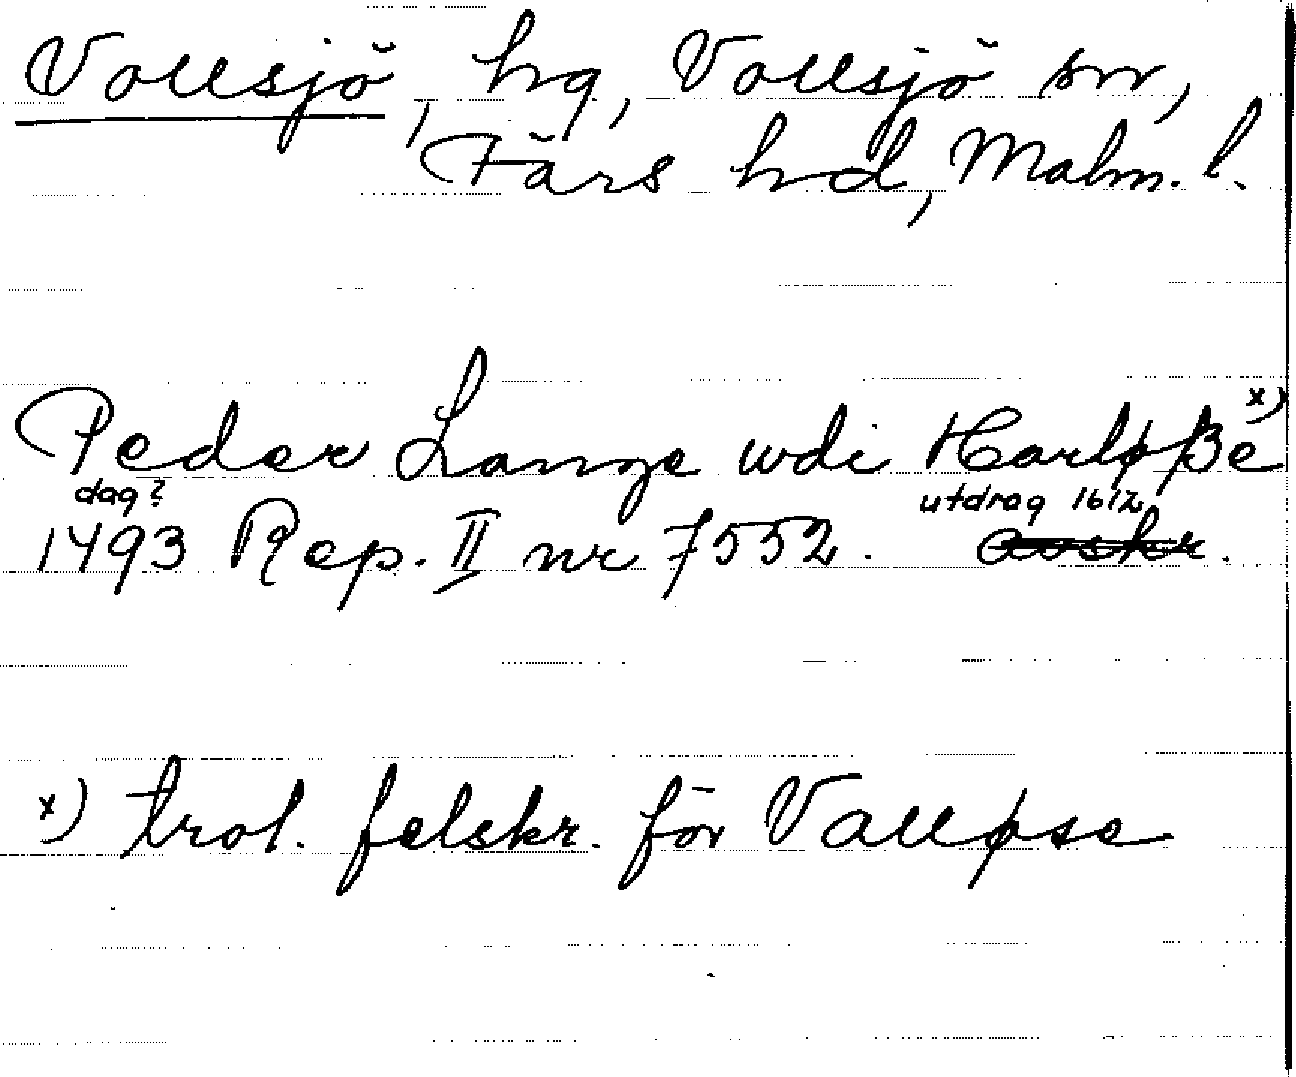 Vollsjö, hg, Vollsjö sn,
Färs hd, Malm. l.
Peder Lange wdi Harløße x)
dag? utdrag 1612
1493 Rep. II nr 7552. avskr.
x) trol. felskr. för Valløse